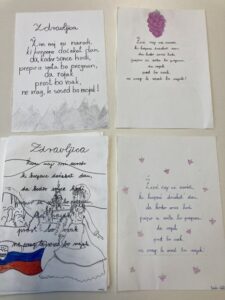 Zdravljica
Žive naj vsi narodi,
ki hrepene dočakat dan,
da koder sonce hodi,
prepir iz sveta bo pregnan,
da rojak
prost bo vsak,
ne vrag, le sosed bo mejak!
Žive naj vsi narodi,
ki hrepene dočakat dan,
da koder sonce hodi,
prepir iz sveta bo pregnan,
da rojak
prost bo vsak,
ne vrag, le sosed bo mejak!
Zdravljica
Žive naj vsi narodi
ki hrepene dočakat dan,
da koder sonce hodi,
prepir iz sveta bo pregnan,
da rojak
prost bo vsak
ne vrag, le sosed bo mejak
Žive naj vsi narodi,
ki hrepene dočakat dan,
da koder sonce hodi,
prepir iz sveta bo pregnan,
da rojak
prost bo vsak,
ne vrag, le sosed bo mejak!